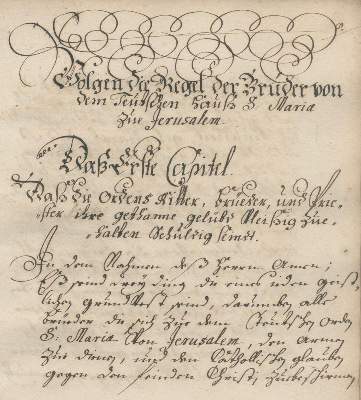 Volgen die Regel der Brüder von
dem Teutschen Hauß S. Maria
zue Jerusalem.
Daß Erste Capitel.
Daß die Ordens Ritter, brueder, und Prie-
ster ire gethanne gelübt fleißig zue
halten schuldig seindt.
In dem Nahmen deß Herrn Amen;
Eß seind drey ding die eines geist-
lichen grundtfest seind, darumben alle
brueder die sich zue dem Teutschen Orden
S. Maria von Jerusalem, den Armen
zue dienen, und den Catholischen glauben
gegen den feinden Christi, zubeschirmen